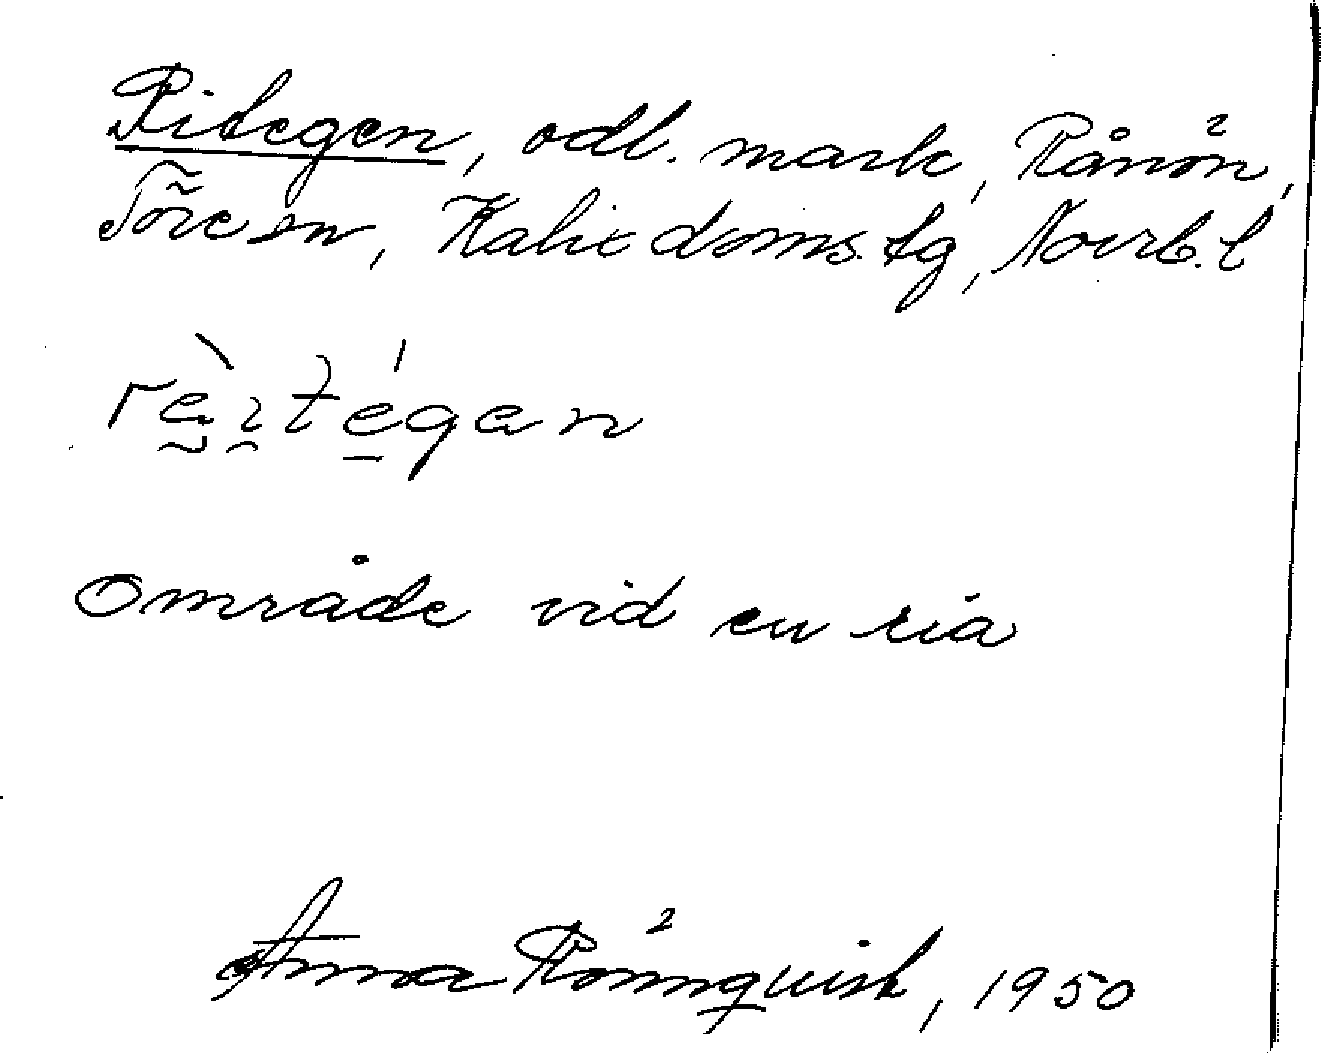 Ritegen, odl. mark, Rånön,
Töre sn, Kalix doms. tg, Norrb. l
rèɪtégan
Område vid en ria
Anna Rönnquist, 1950